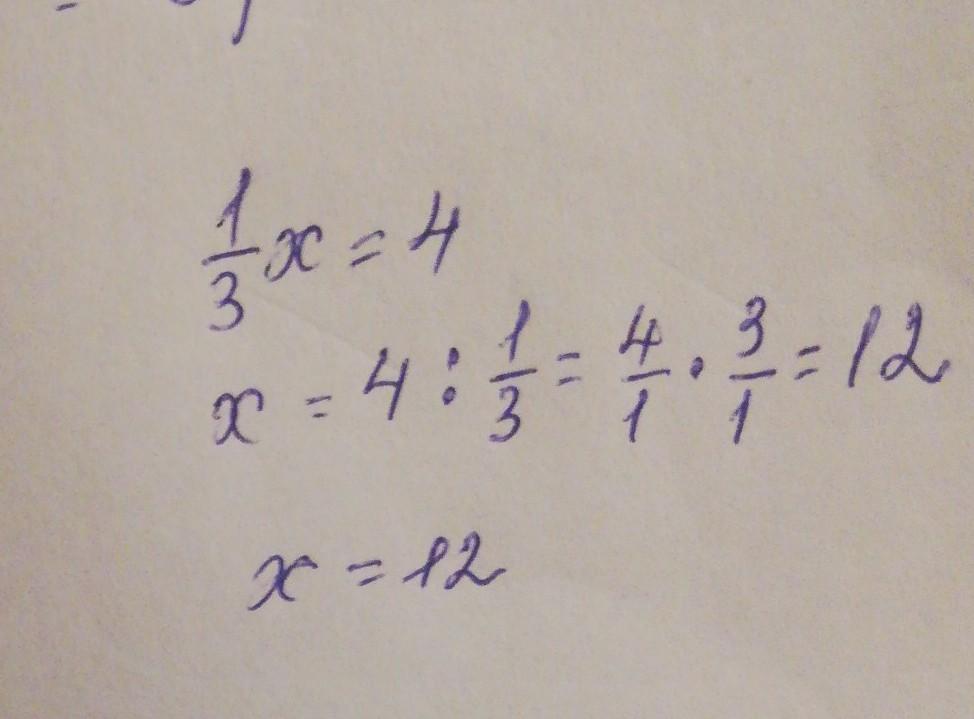 1/3 x = 4
x = 4 : 1/3 = 4/1 · 3/1 = 12
x = 12